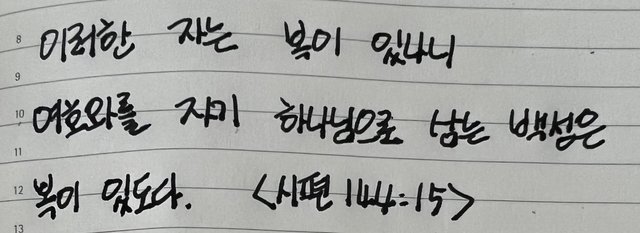 8
이러한 자는 복이 있나니
9
10 여호와를 자기 하나님으로 삼는 백성은
11
12 복이 있도다. <시편 144:15>
13